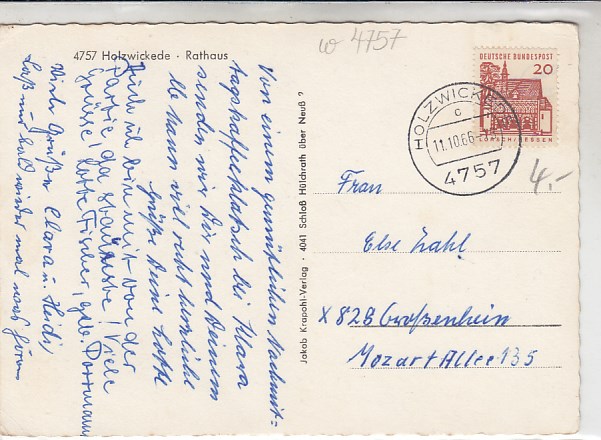 4757 Holzwickede · Rathaus
w 4757
DEUTSCHE BUNDESPOST
20
LORSCH/HESSEN
HOLZWICKEDE
c
11.10.66
4757
4.-
Von einem gemütlichen Nachmit-
tagskaffeeklatsch bei Klara
senden wir Dir und Deinem
Mann viel recht herzliche
Grüße Deine Lotte
Auch ich bin mit von der
Partie, da staunste! Viele
Grüsse, Lotte Fischer, geb.
Viele Grüße Clara u. Heidi,
Laß mal bald wieder mal was hören
Jakob Krapohl-Verlag · 4041 Schloß Hülchrath über Neuß
Frau
Else Zahl
X 828 Großenhein
Mozart Allee 135